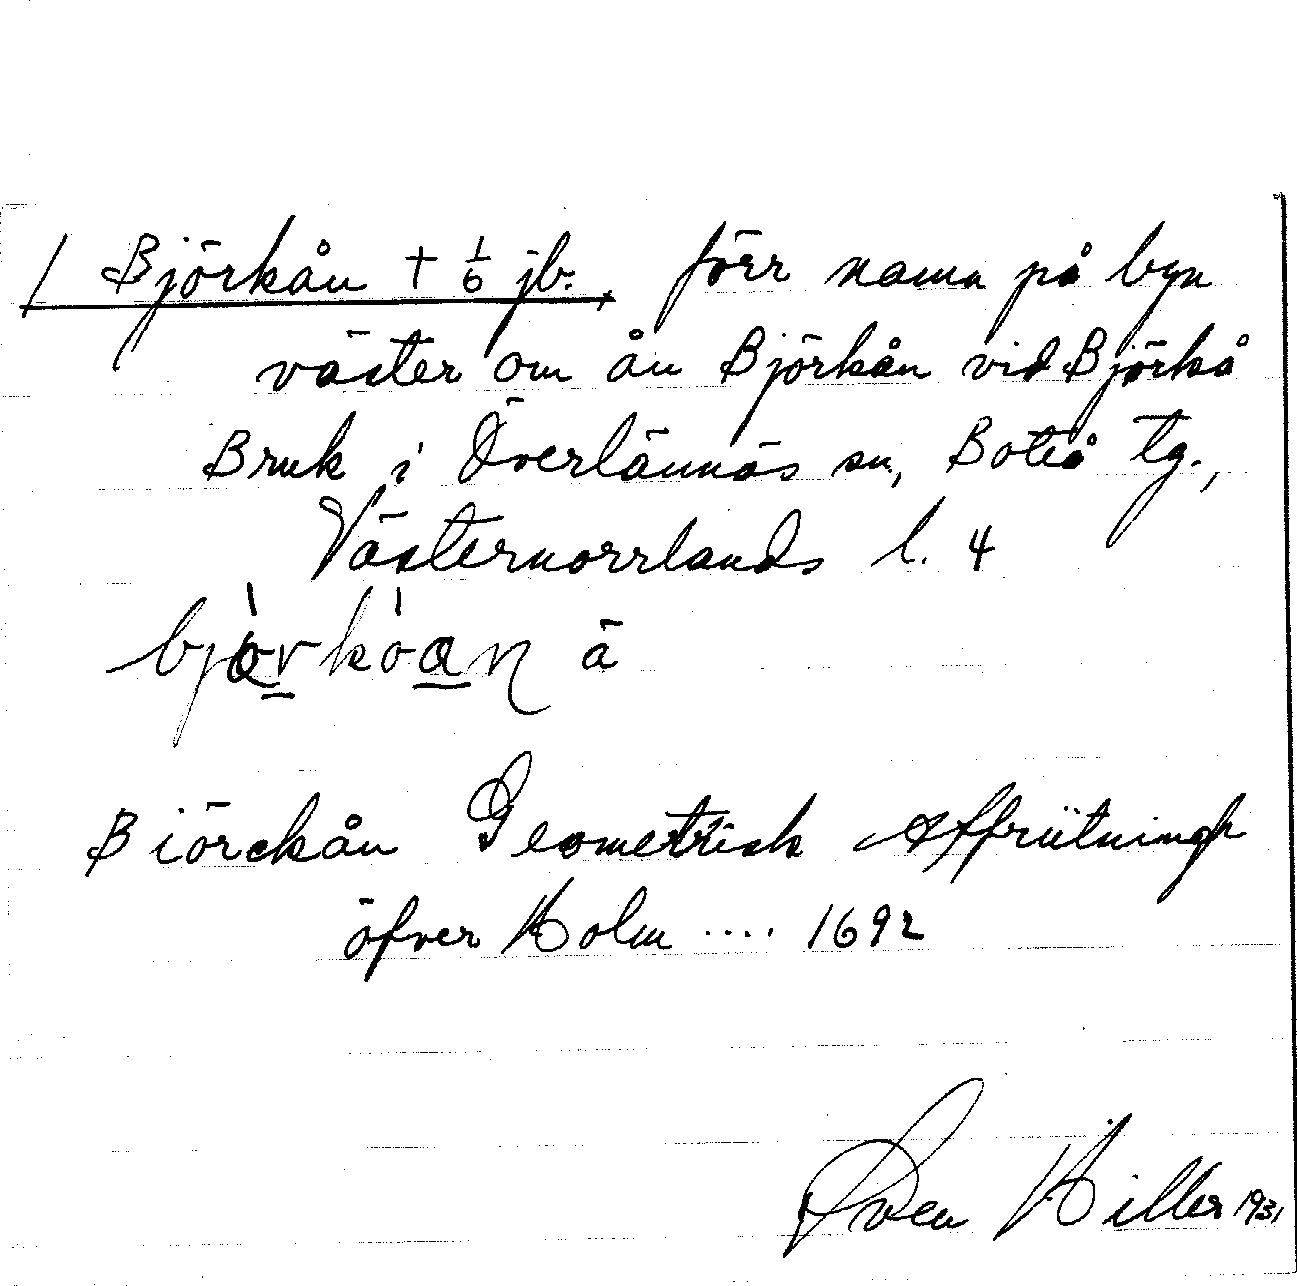 / Björkån + 1/6 jb., förr namn på byn
väster om ån Björkån vid Björkå
Bruk i Överlännäs sn, Boteå tg.,
Västernorrlands l. 4
ä
Biörckån Geometrisk Affriitningh
öfver Holm .... 1692
Sven Hiller 1931